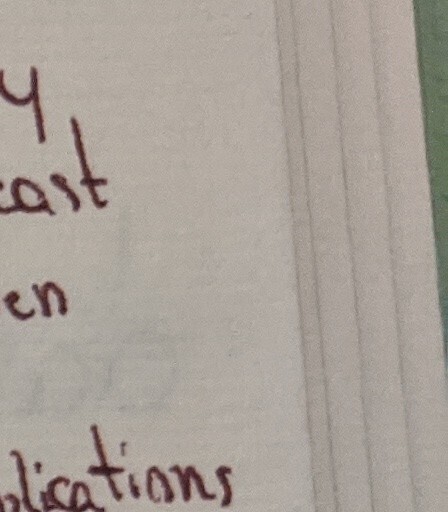 y
cast
en
plications